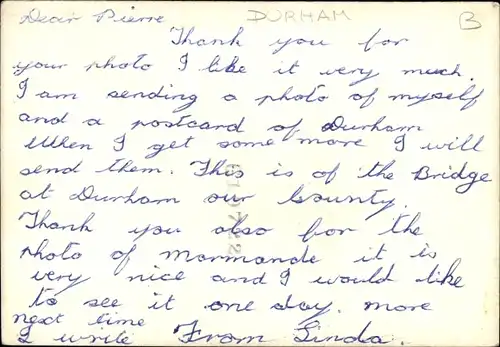 Dear Pierre
DURHAM
B
Thank you for
your photo I like it very much.
I am sending a photo of myself
and a postcard of Durham
When I get some more I will
send them. This is of the Bridge
at Durham our County.
Thank you also for the
photo of Marmande it is
very nice and I would like
to see it one day. more
next time
I write From Linda.